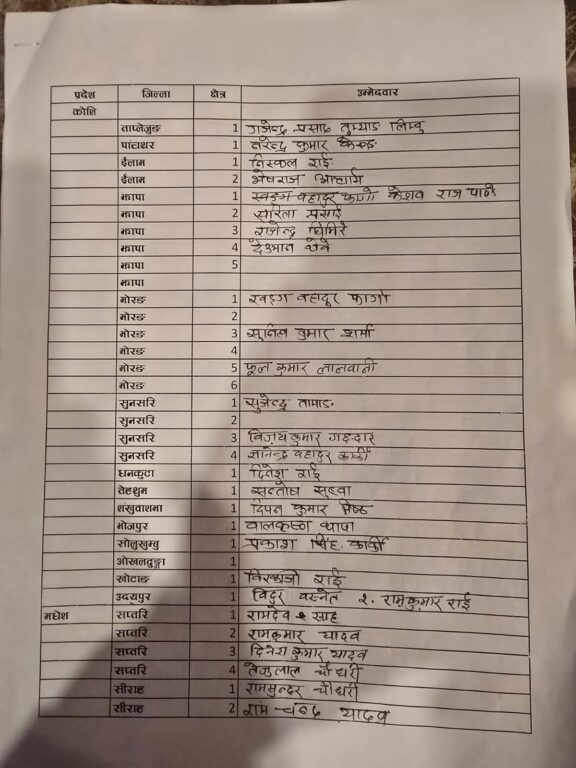 प्रदेश जिल्ला क्षेत्र उम्मेदवार
कोशि
ताप्लेजुङ 1 गजेन्द्र प्रसाद तुम्याङ लिम्बु
पांचथर 1 नरेन्द्र कुमार केरुङ
ईलाम 1 निस्कल राई
ईलाम 2 भेषराज आचार्य
झापा 1 खड्ग बहादुर फागो केशव राज पाण्डे
झापा 2 सरिता प्रसाई
झापा 3 राजेन्द्र घिमिरे
झापा 4
झापा 5
झापा
मोरङ 1 खड्ग बहादूर फागो
मोरङ 2
मोरङ 3 सुनिल कुमार शर्मा
मोरङ 4
मोरङ 5 फूल कुमार लालवानी
मोरङ 6
सुनसरि 1 सुजेन्द्र तामाङ
सुनसरि 2
सुनसरि 3 बिजय कुमार
सुनसरि 4 ज्ञानेन्द्र बहादुर कार्की
धनकुटा 1 दिनेश राई
तेह्रथुम 1 सन्तोष सुब्वा
शंखुवाशभा 1 दिपन कुमार श्रेष्ठ
भोजपुर 1 बालकृष्ण थापा
सोलुखुम्बु 1 प्रकाश सिंह कार्की
ओखलढुङ्गा 1
खोटाङ 1 राई
उदयपुर 1 विदुर बस्नेत २. रामकुमार राई
मधेश सप्तरि 1 रामदेव साह
सप्तरि 2 रामकुमार यादव
सप्तरि 3 दिनेश कुमार यादव
सप्तरि 4 तेजुलाल चौधरी
सीराह 1 रामसुन्दर चौधरी
सीराह 2 राम चन्द्र यादव